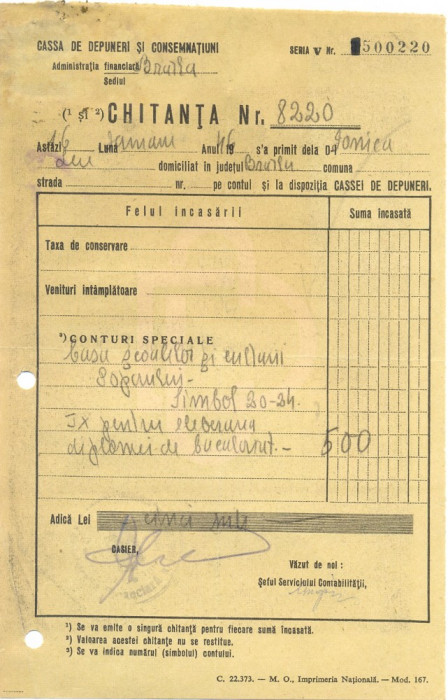 CASSA DE DEPUNERI ȘI CONSEMNAȚIUNI
SERIA V Nr. 500220
Administrația financiară Brăila
Sediul
(¹ și ²) CHITANȚA Nr. 8220
Astăzi 16 Luna Ianuarie Anul 1946 s'a primit dela D-l Ionica
domiciliat in județul Brăila comuna
strada nr. pe contul și la dispoziția CASSEI DE DEPUNERI.
Felul încasării Suma încasată
Taxa de conservare
Venituri întâmplătoare
³) CONTURI SPECIALE
Casa școalelor și culturii
Poporului-
Simbol 20-24.
Tx pentru eliberarea
diplomei de bacalaureat.- 500
Adică Lei cinci sute
CASIER,
Văzut de noi:
Șeful Serviciului Contabilității,
¹) Se va emite o singură chitanță pentru fiecare sumă încasată.
²) Valoarea acestei chitanțe nu se restitue.
³) Se va indica numărul (simbolul) contului.
C. 22.373. — M. O., Imprimeria Națională. — Mod. 167.